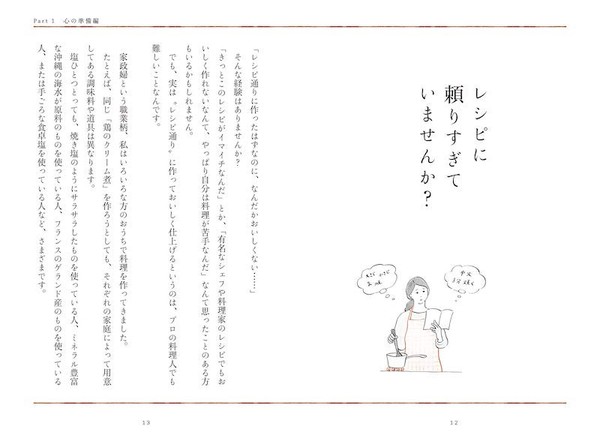 Part 1 心の準備編
レシピに
頼りすぎて
いませんか？
「レシピ通りに作ったはずなのに、なんだかおいしくない……」
そんな経験はありませんか？
「きっとこのレシピがイマイチなんだ」とか、「有名なシェフや料理家のレシピでもお
いしく作れないなんて、やっぱり自分は料理が苦手なんだ」なんて思ったことのある方
もいるかもしれません。
でも、実は〝レシピ通り〟に作っておいしく仕上げるというのは、プロの料理人でも
難しいことなんです。
家政婦という職業柄、私はいろいろな方のおうちで料理を作ってきました。
たとえば、同じ「鶏のクリーム煮」を作ろうとしても、それぞれの家庭によって用意
してある調味料や道具は異なります。
塩ひとつとっても、焼き塩のようにサラサラしたものを使っている人、ミネラル豊富
な沖縄の海水が原料のものを使っている人、フランスのゲランド産のものを使っている
人、または手ごろな食卓塩を使っている人など、さまざまです。
12